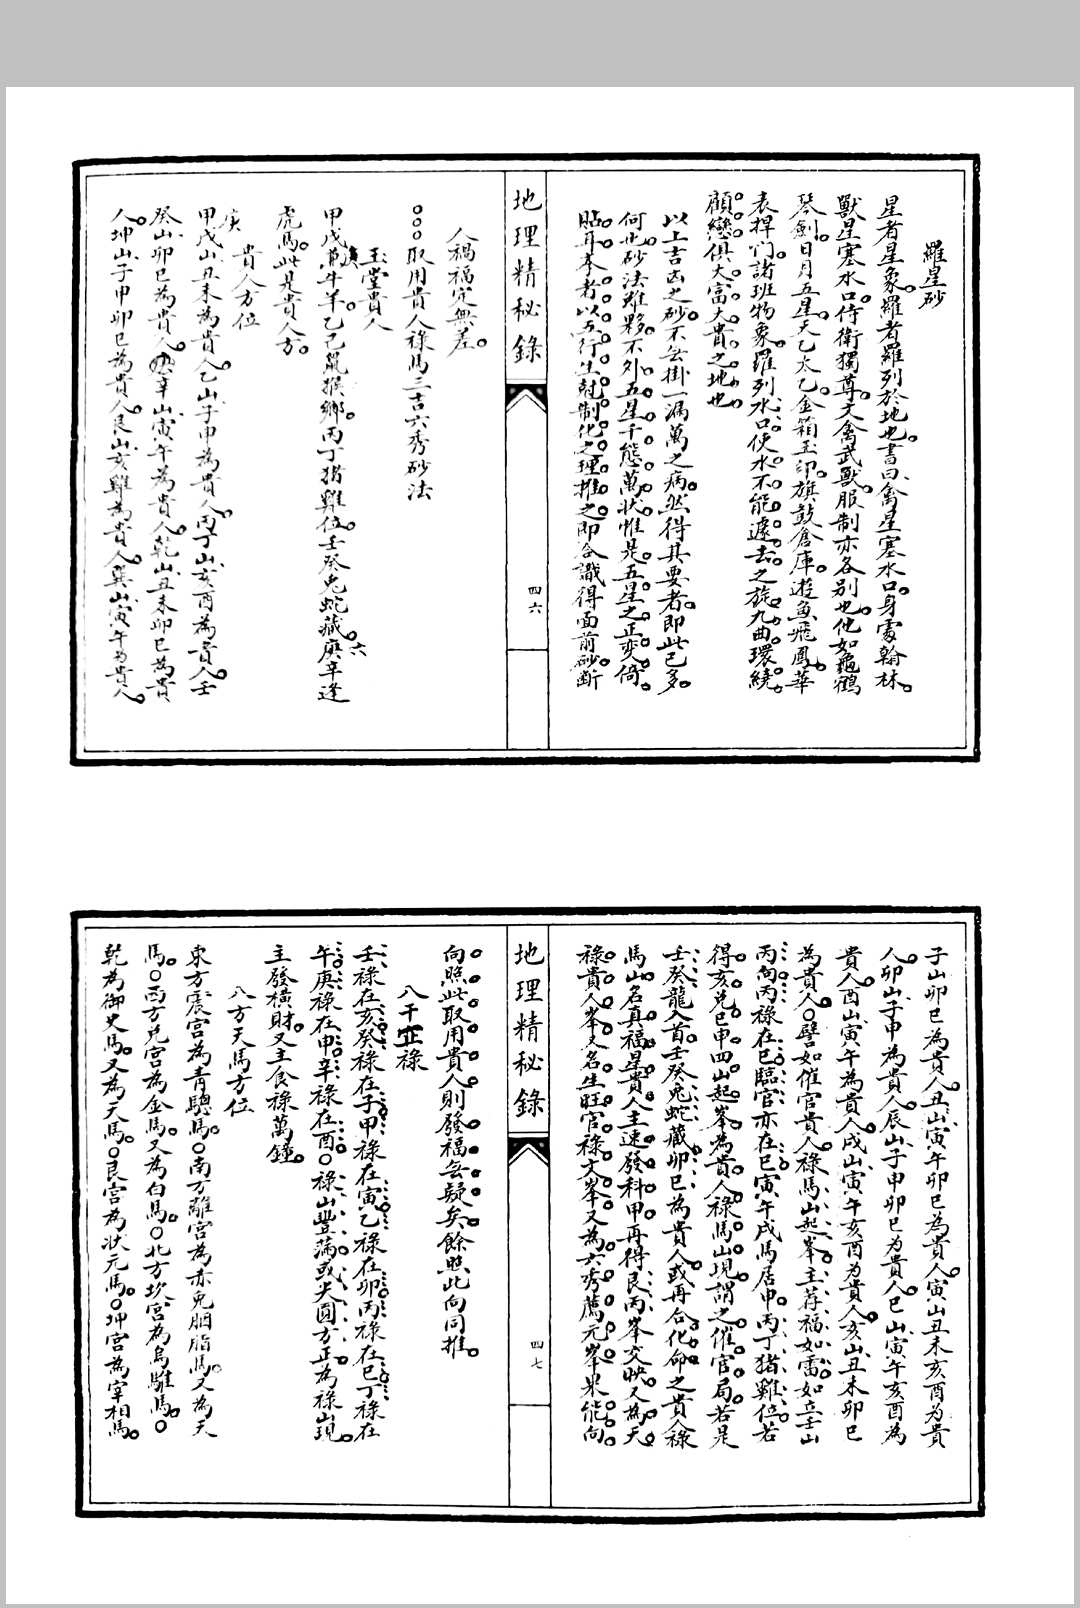 羅星砂
星者星象。羅者羅列於地也。書曰禽星塞水口。身處翰林。
獸星塞水口。侍衛獨尊。文禽武獸。服制亦各別也。他如龜鶴
琴劍。日月五星。天乙太乙。金箱玉印。旗鼓倉庫。遊魚飛鳳。華
表捍門。諸班物象。羅列水口。使水不能遽去。之旋九曲。環繞
顧戀。俱大富大貴之地也。
以上吉凶之砂。不無掛一漏萬之病。然得其要者。即此已多。
何也。砂法雖夥。不外五星。千態萬狀。惟是五星之正變。倚
貼耳。峯者以五行生尅制化之理推之。即合識得面前砂。斷
地理精秘錄
四六
人禍福定無差。
○○○取用貴人祿馬三吉六秀砂法
玉堂貴人
甲戊庚牛羊。乙己鼠猴鄉。丙丁猪雞位。壬癸兎蛇藏。六庚辛逢
虎馬。此是貴人方。
貴人方位
甲戊庚山丑未為貴人。乙山子申為貴人。丙丁山亥酉為貴人。壬
癸山卯巳為貴人。辛山寅午為貴人。乾山丑未卯巳為貴
人。坤山子申卯巳為貴人。艮山亥雞為貴人。巽山寅午為貴人。
子山卯巳為貴人。丑山寅午卯巳為貴人。寅山丑未亥酉为貴
人。卯山子申為貴人。辰山子申卯巳为貴人。巳山寅午亥酉為
貴人。酉山寅午為貴人。戌山寅午亥酉为貴人。亥山丑未卯巳
為貴人。○譬如催官貴人。祿馬山起峯。主荐福如雷。如立壬山
丙向。丙祿在巳。臨官亦在巳。寅午戌馬居申。丙丁猪雞位。若
得亥兌巳申四山起峯。為貴人祿馬山現。謂之催官局。若是
壬癸龍入首。壬癸兎蛇藏。卯巳為貴人。或再合化命之貴人祿
馬山。名真福星貴人。主速發科甲。再得艮丙峯交映。又為天
祿貴人峯。又名生旺官祿文峯。又為六秀薦元峯。果能向
地理精秘錄
四七
向照此取用貴人。則發福無疑矣。餘照此向同推。
八干正祿
壬祿在亥。癸祿在子。甲祿在寅。乙祿在卯。丙祿在巳。丁祿在
午。庚祿在申。辛祿在酉。○祿山豐滿。或尖圓方正。為祿山現。
主發橫財。又主食祿萬鐘。
八方天馬方位
東方震宮為青驄馬。○南方離宮為赤兔胭脂馬。又為天
馬。○西方兌宮為金馬。又為白馬。○北方坎宮為烏騅馬。○
乾為御史馬。又為天馬。○艮宮為狀元馬。○坤宮為宰相馬。